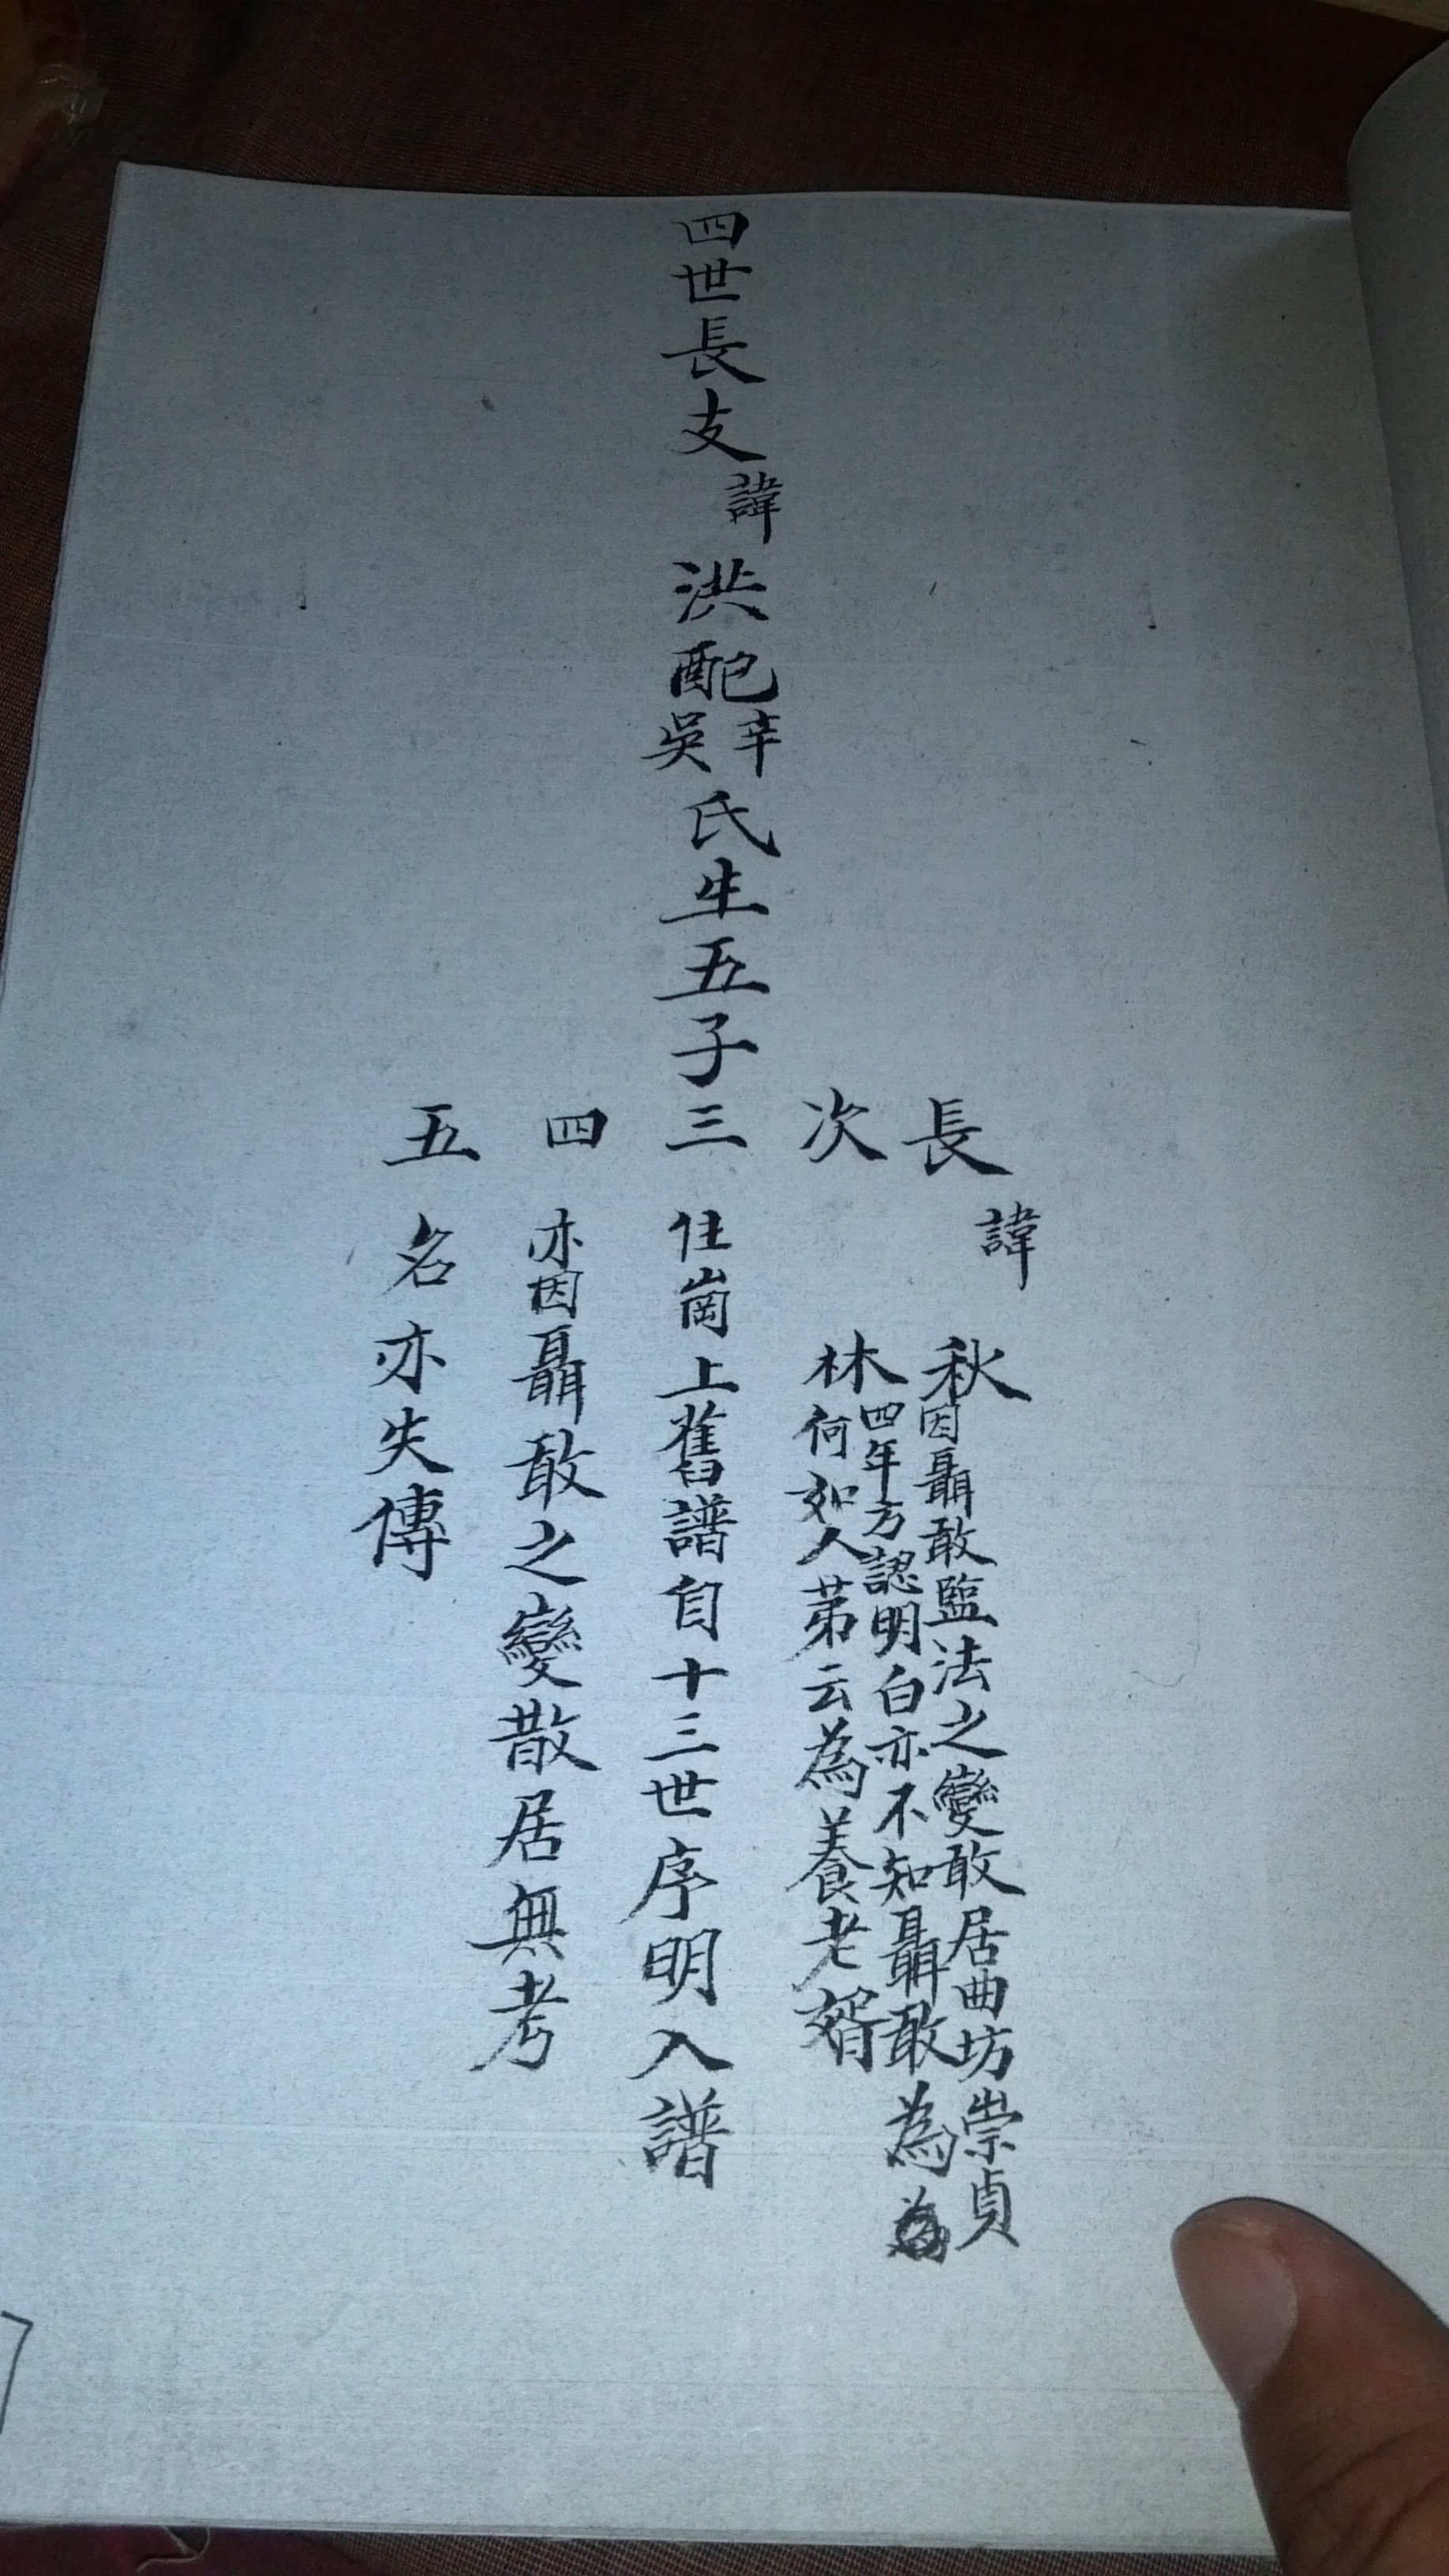 四世長支諱洪配辛吳氏生五子
長諱秋因聶敢監法之變敢居曲坊崇貞
四年方認明白亦不知聶敢為
次林何如人苐云為養老婿
三住崗上舊譜自十三世序明入譜
四亦因聶敢之變散居無考
五名亦失傳